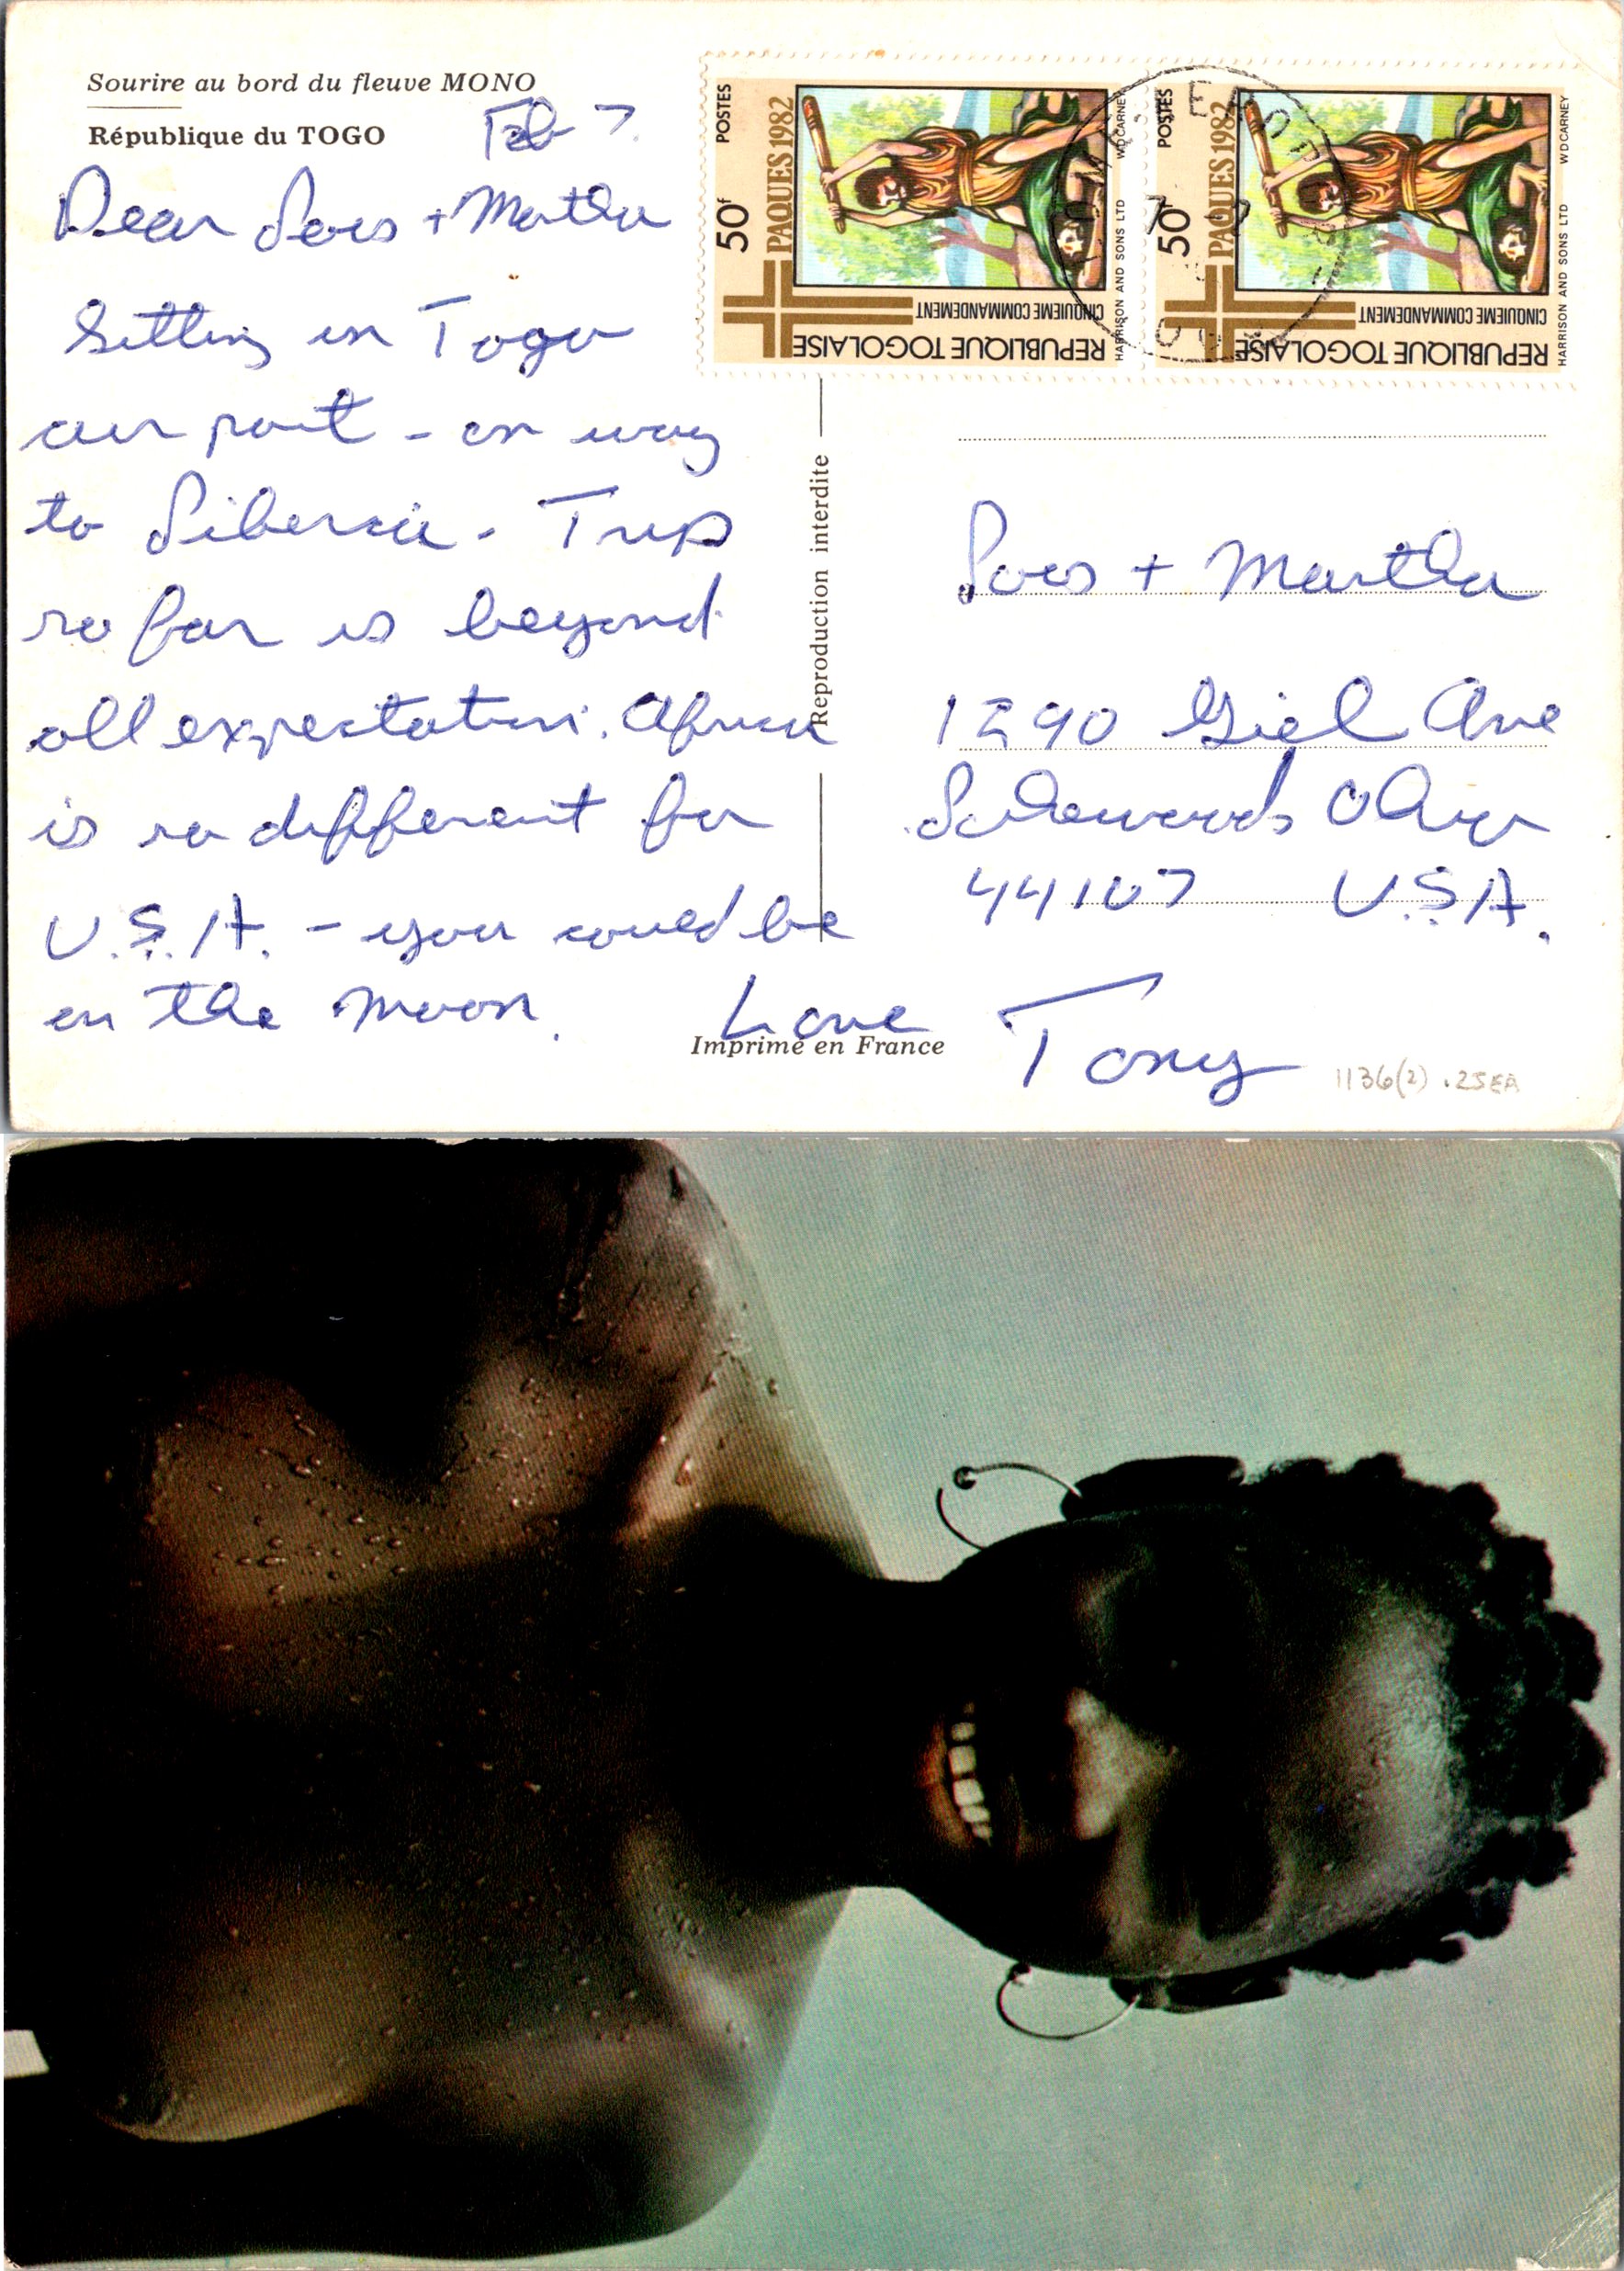 Sourire au bord du fleuve MONO
République du TOGO
Feb 7.
Dear Lois + Martha
Sitting in Togo
air port - on way
to Liberia. Trip
so far is beyond
all expectation. Africa
is so different for
U.S.A. - you could be
on the moon.
Love
Tony
Imprimé en France
Reproduction interdite
POSTES
50f
PAQUES 1982
CINQUIEME COMMANDEMENT
REPUBLIQUE TOGOLAISE
HARRISON AND SONS LTD
WD CARNEY
POSTES
50f
PAQUES 1982
CINQUIEME COMMANDEMENT
REPUBLIQUE TOGOLAISE
HARRISON AND SONS LTD
WD CARNEY
Lois + Martha
1290 Giel Ave
Lakewood, Ohio
44107 U.S.A.
1136(2) .25EA